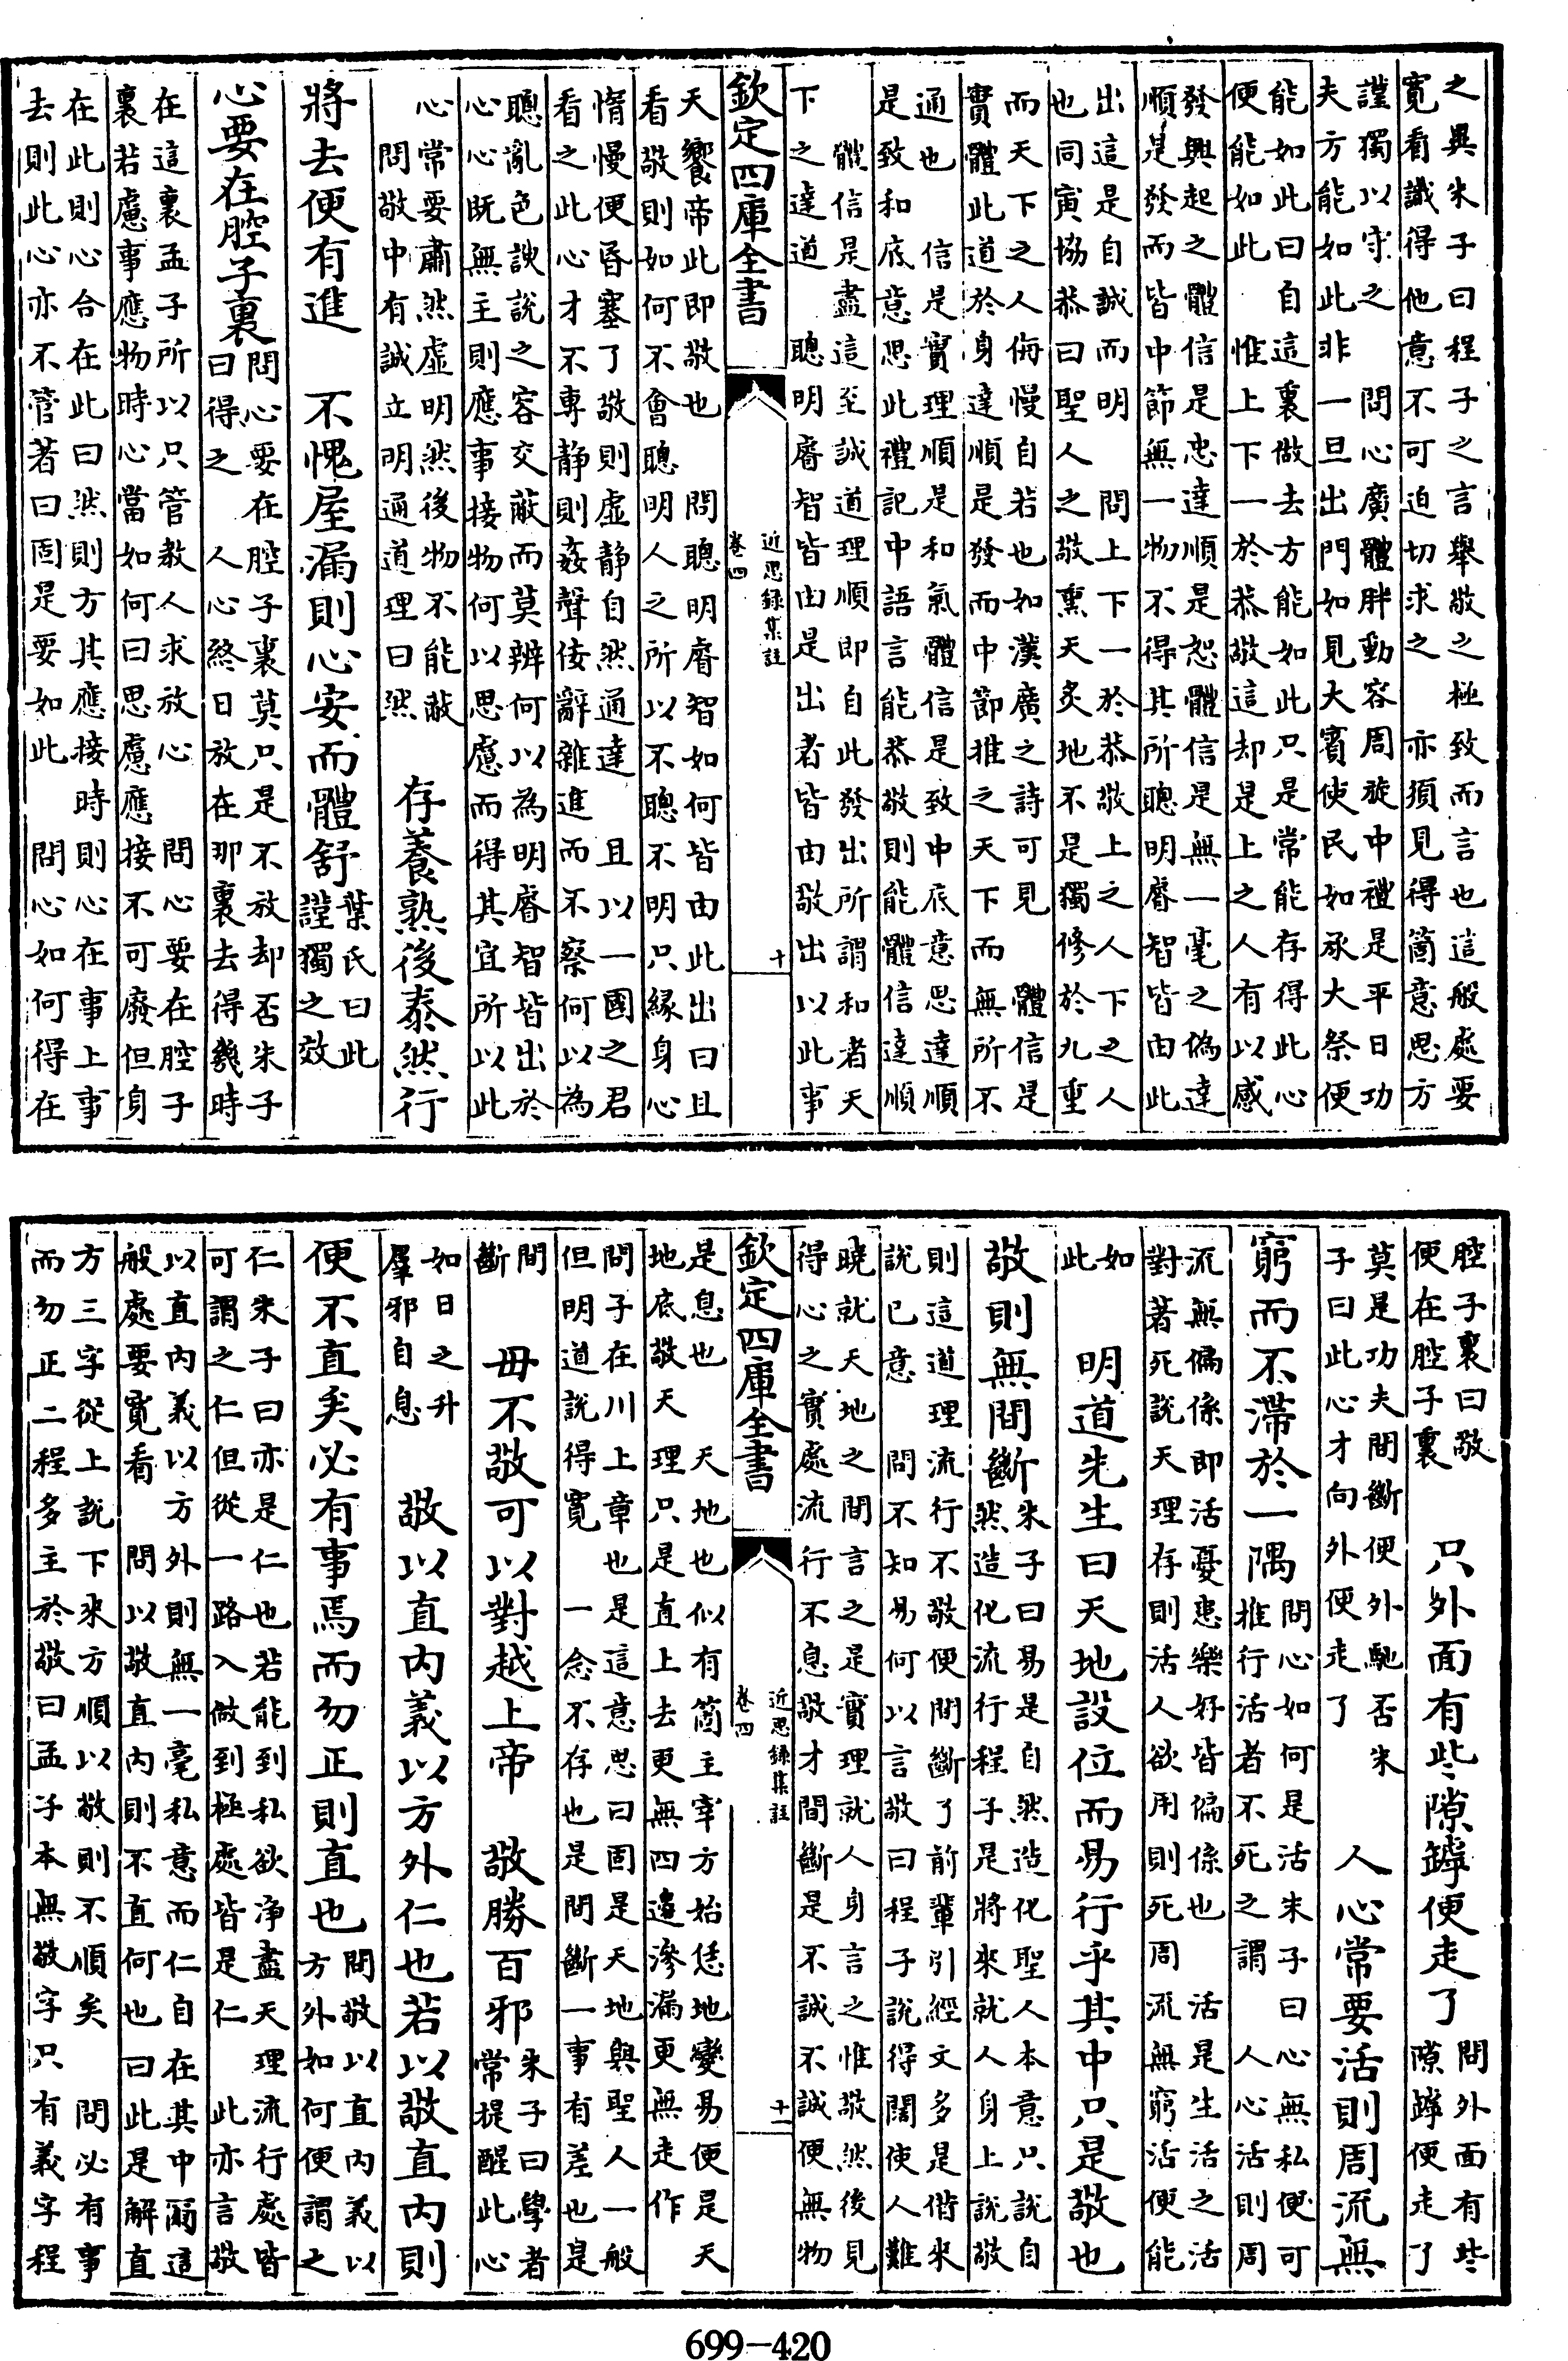 之與朱子曰程子之言舉敬之極致而言也這般處要
寛看識得他意不可迫切求之　亦須見得箇意思方
謹獨以守之　問心廣體胖動容周旋中禮是平日功
夫方能如此非一旦出門如見大賓使民如承大祭便
能如此曰自這裏做去方能如此只是常能存得此心
便能如此　惟上下一於恭敬這却是上之人有以感
發興起之體信是忠達順是恕體信是無一毫之偽達
順是發而皆中節無一物不得其所聰明睿智皆由此
出這是自誠而明　問上下一於恭敬上之人下之人
也同寅協恭曰聖人之敬熏天炙地不是獨修於九重
而天下之人侮慢自若也如漢廣之詩可見　體信是
實體此道於身達順是發而中節推之天下而無所不
通也　信是實理順是和氣體信是致中底意思達順
是致和底意思此禮記中語言能恭敬則能體信達順
體信是盡這至誠道理順即自此發出所謂和者天
下之達道　聰明睿智皆由是出者皆由敬出以此事
欽定四庫全書
近思録集註
卷四
十
天饗帝此即敬也　問聰明睿智如何皆由此出曰且
看敬則如何不會聰明人之所以不聰不明只緣身心
惰慢便昏塞了敬則虛靜自然通達　且以一國之君
看之此心才不專靜則姦聲佞辭雜進而不察何以為
聰亂色諛說之容交蔽而莫辨何以為明睿智皆出於
心心既無主則應事接物何以思慮而得其宜所以此
心常要肅然虛明然後物不能蔽
問敬中有誠立明通道理曰然
存養熟後泰然行
將去便有進　不愧屋漏則心安而體舒
葉氏曰此
謹獨之效
心要在腔子裏
問心要在腔子裏莫只是不放却否朱子
曰得之　人心終日放在那裏去得幾時
在這裏孟子所以只管教人求放心　問心要在腔子
裏若慮事應物時心當如何曰思慮應接不可廢但身
在此則心合在此曰然則方其應接時則心在事上事
去則此心亦不管著曰固是要如此　問心如何得在
腔子裏曰敬
便在腔子裏
只外面有些隙罅便走了
問外面有些
隙罅便走了
莫是功夫間斷便外馳否朱
子曰此心才向外便走了
人心常要活則周流無
窮而不滯於一隅
問心如何是活朱子曰心無私便可
推行活者不死之謂　人心活則周
流無偏係即活憂患樂好皆偏係也　活是生活之活
對著死說天理存則活人欲用則死周流無窮活便能
如
此
明道先生曰天地設位而易行乎其中只是敬也
敬則無間斷
朱子曰易是自然造化聖人本意只說自
然造化流行程子是將來就人身上說敬
則這道理流行不敬便間斷了前輩引經文多是借來
說已意　問不知易何以言敬曰程子說得闊使人難
曉就天地之間言之是實理就人身言之惟敬然後見
得心之實處流行不息敬才間斷是不誠不誠便無物
欽定四庫全書
近思録集註
卷四
十一
是息也　天地也似有箇主宰方始恁地變易便是天
地底敬天理只是直上去更無四邊滲漏更無走作
問子在川上章也是這意思曰固是天地與聖人一般
但明道說得寛　一念不存也是間斷一事有差也是
間
斷
毋不敬可以對越上帝　敬勝百邪
朱子曰學者
常提醒此心
如日之升
羣邪自息
敬以直內義以方外仁也若以敬直內則
便不直矣必有事焉而勿正則直也
問敬以直內義以
方外如何便謂之
仁朱子曰亦是仁也若能到私欲淨盡天理流行處皆
可謂之仁但從一路入做到極處皆是仁　此亦言敬
以直內義以方外則無一毫私意而仁自在其中爾這
般處要寛看　問以敬直內則不直何也曰此是解直
方三字從上說下來方順以敬則不順矣　問必有事
而勿正二程多主於敬曰孟子本無敬字只有義字程
699-420